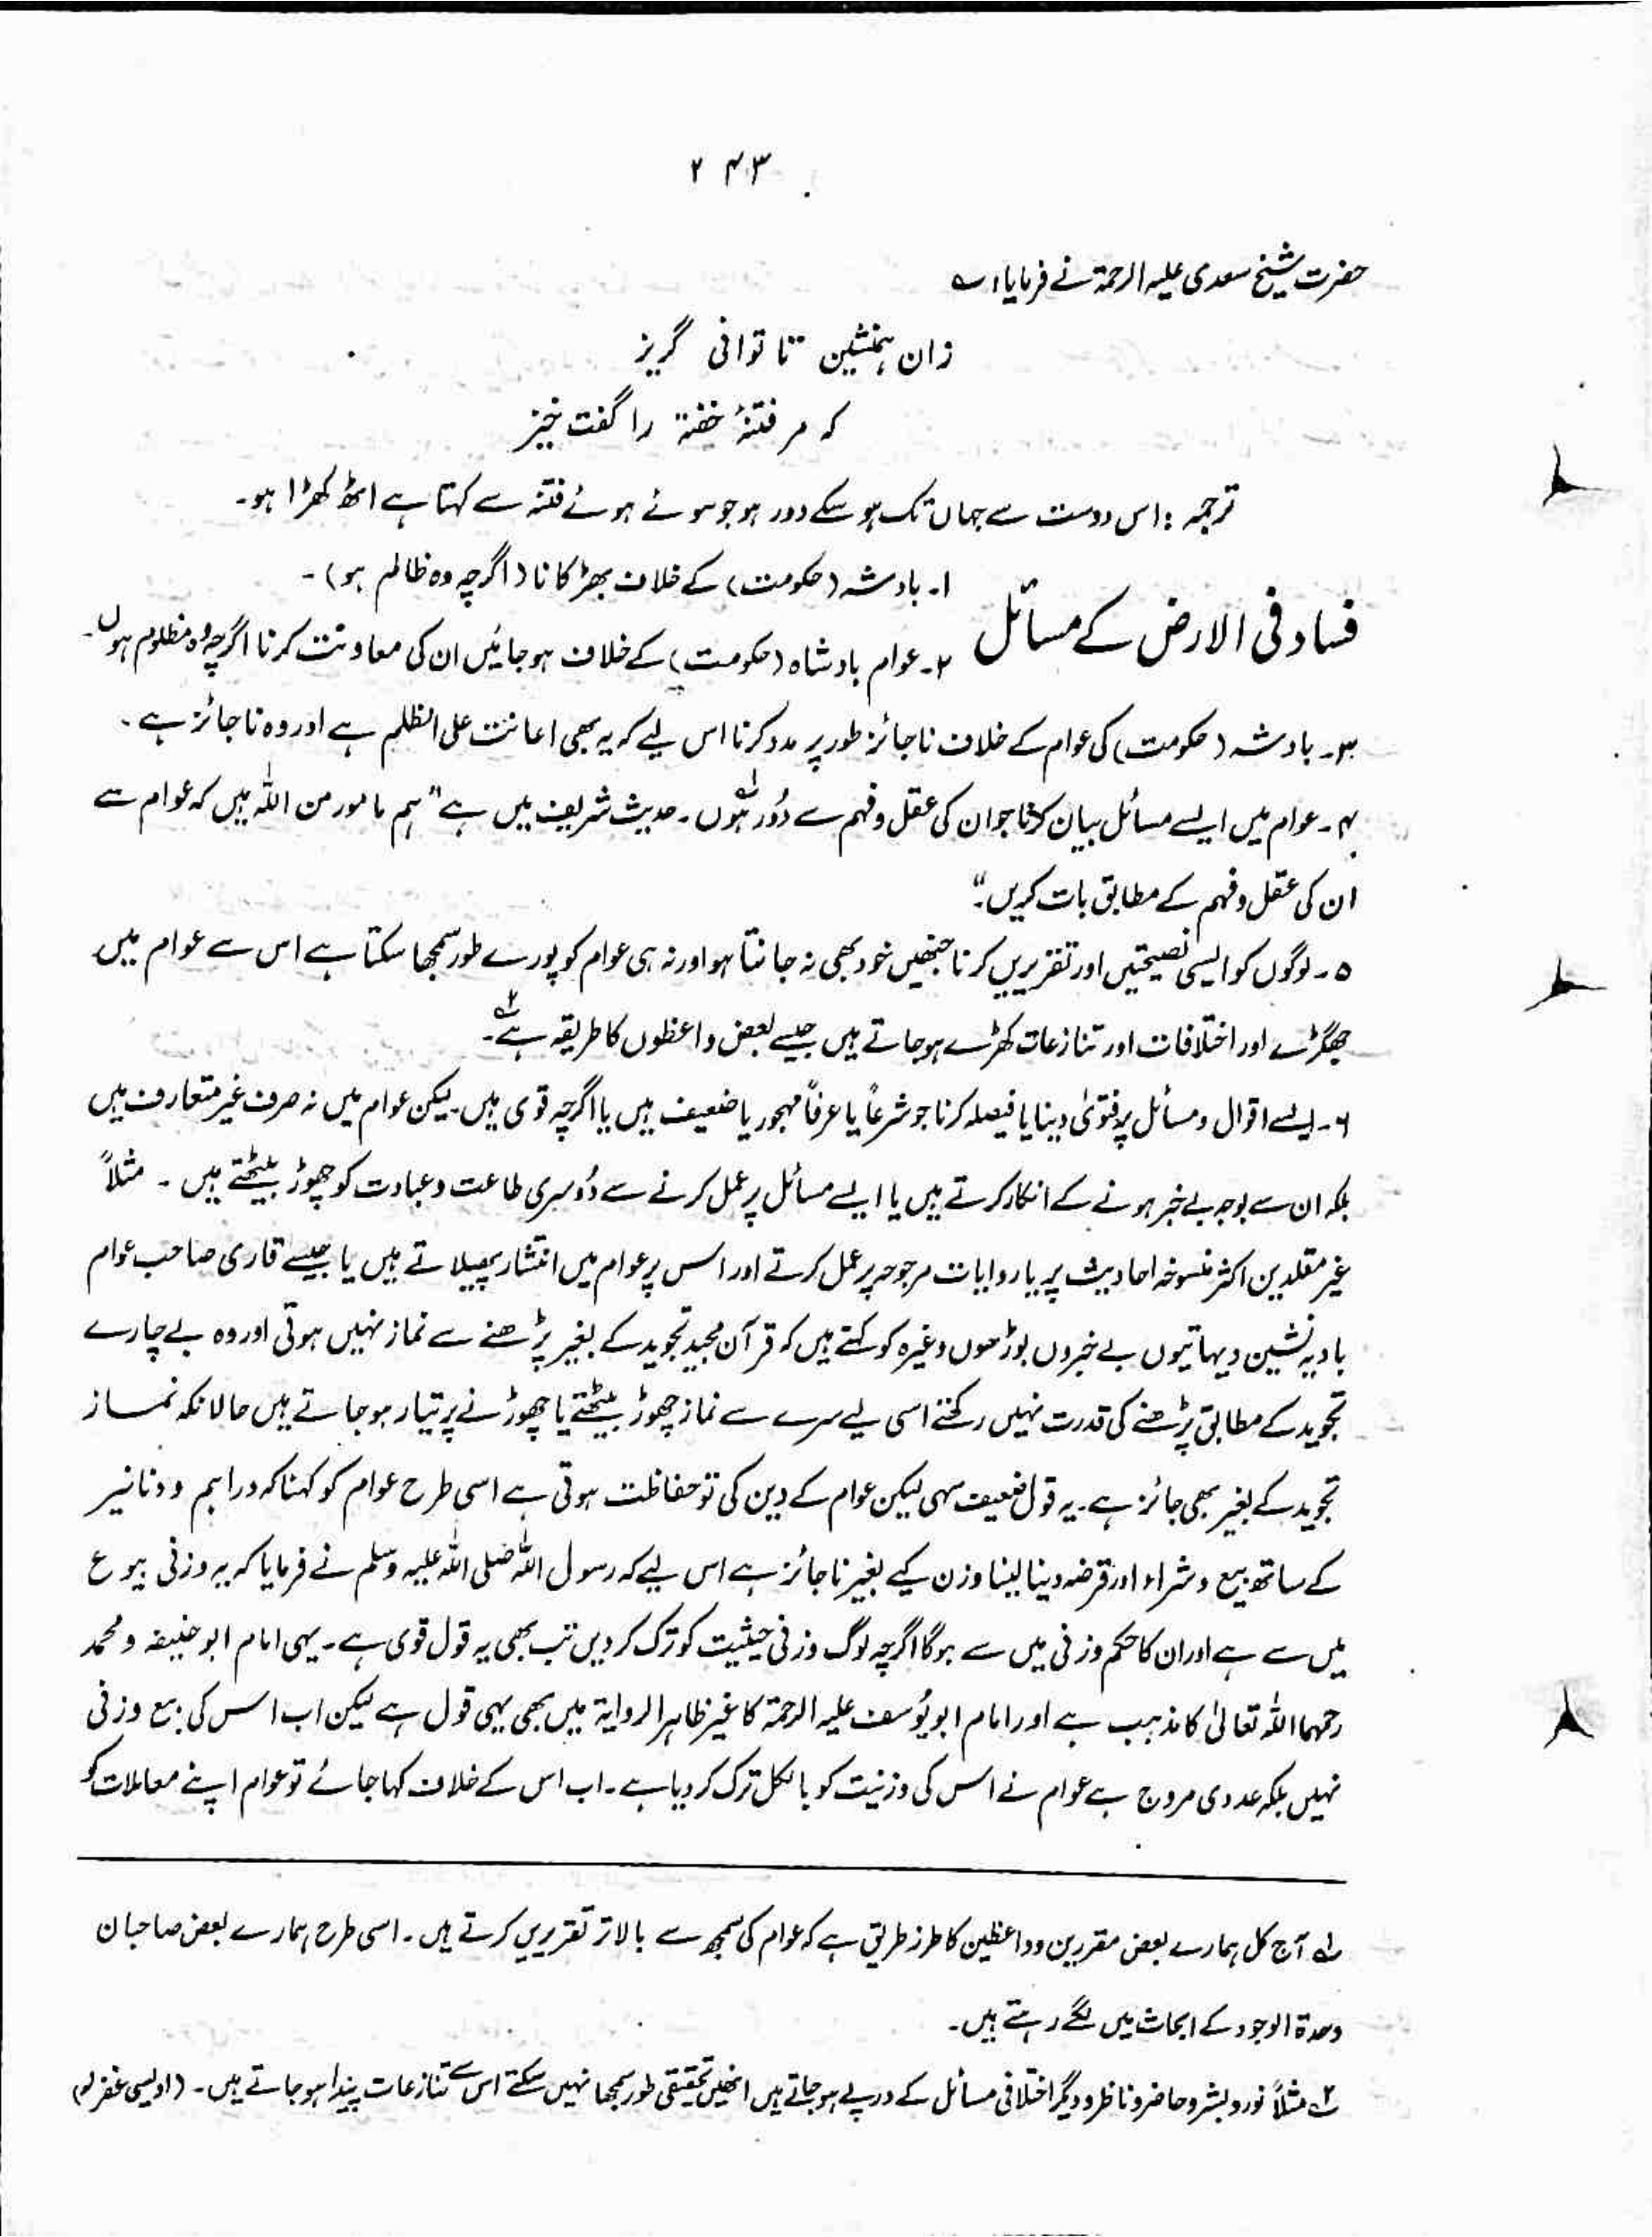 ۲۴۳
حضرت شیخ سعدی علیہ الرحمۃ نے فرمایا: ؎
زان ہمنشین تا توانی گریز
کہ مر فتنۂ خفتہ را گفت خیز
ترجمہ: اس دوست سے جہاں تک ہو سکے دور ہو جو سوئے ہوئے فتنہ سے کہتا ہے اٹھ کھڑا ہو۔
فساد فی الارض کے مسائل
۱۔ بادشہ (حکومت) کے خلاف بھڑکانا (اگرچہ وہ ظالم ہو)۔
۲۔ عوام بادشاہ (حکومت) کے خلاف ہو جائیں ان کی معاونت کرنا اگرچہ وہ مظلوم ہوں۔
۳۔ بادشہ (حکومت) کی عوام کے خلاف ناجائز طور پر مدد کرنا اس لیے کہ یہ بھی اعانت علی الظلم ہے اور وہ ناجائز ہے۔
۴۔ عوام میں ایسے مسائل بیان کرنا جو ان کی عقل و فہم سے دُور ہوں۔ؑ۱ حدیث شریف میں ہے "ہم مامور من اللہ ہیں کہ عوام سے
ان کی عقل و فہم کے مطابق بات کریں۔"
۵۔ لوگوں کو ایسی نصیحتیں اور تقریریں کرنا جنھیں خود بھی نہ جانتا ہو اور نہ ہی عوام کو پورے طور سمجھا سکتا ہے اس سے عوام میں
جھگڑے اور اختلافات اور تنازعات کھڑے ہو جاتے ہیں جیسے بعض واعظوں کا طریقہ ہے۲۔
۶۔ ایسے اقوال و مسائل پر فتویٰ دینا یا فیصلہ کرنا جو شرعاً یا عرفاً مہجور یا ضعیف ہیں یا اگرچہ قوی ہیں۔ لیکن عوام میں نہ صرف غیر متعارف ہیں
بلکہ ان سے بوجہ بے خبر ہونے کے انکار کرتے ہیں یا ایسے مسائل پر عمل کرنے سے دُوسری طاعت و عبادت کو چھوڑ بیٹھتے ہیں۔ مثلاً
غیر مقلدین اکثر منسوخہ احادیث پر یا روایات مرجوحہ پر عمل کرتے اور اس پر عوام میں انتشار پھیلاتے ہیں یا جیسے قاری صاحب عوام
بادیہ نشین دیہاتیوں بے خبروں بوڑھوں وغیرہ کو کہتے ہیں کہ قرآن مجید تجوید کے بغیر پڑھنے سے نماز نہیں ہوتی اور وہ بے چارے
تجوید کے مطابق پڑھنے کی قدرت نہیں رکھتے اسی لیے سرے سے نماز چھوڑ بیٹھتے یا چھوڑنے پر تیار ہو جاتے ہیں حالانکہ نماز
تجوید کے بغیر بھی جائز ہے۔ یہ قول ضعیف سہی لیکن عوام کے دین کی تو حفاظت ہوتی ہے اسی طرح عوام کو کہنا کہ دراہم و دنانیر
کے ساتھ بیع و شراء اور قرضہ دینا لینا وزن کیے بغیر ناجائز ہے اس لیے کہ رسول اللہ صلی اللہ علیہ وسلم نے فرمایا کہ یہ وزنی بیوع
میں سے ہے اور ان کا حکم وزنی میں سے ہوگا اگرچہ لوگ وزنی حیثیت کو ترک کر دیں تب بھی یہ قول قوی ہے۔ یہی امام ابو حنیفہ و محمد
رحمہما اللہ تعالیٰ کا مذہب ہے اور امام ابو یُوسف علیہ الرحمۃ کا غیر ظاہر الروایۃ میں بھی یہی قول ہے لیکن اب اس کی بیع وزنی
نہیں بلکہ عددی مروج ہے عوام نے اس کی وزنیت کو بالکل ترک کر دیا ہے۔ اب اس کے خلاف کہا جائے تو عوام اپنے معاملات کو
۱ آج کل ہمارے بعض مقررین و واعظین کا طرز طریق ہے کہ عوام کی سمجھ سے بالاتر تقریریں کرتے ہیں۔ اسی طرح ہمارے بعض صاحبان
وحدۃ الوجود کے ابحاث میں لگے رہتے ہیں۔
۲ مثلاً نور و بشر و حاضر و ناظر و دیگر اختلافی مسائل کے درپے ہو جاتے ہیں انھیں تحقیقی طور سمجھا نہیں سکتے اس سے تنازعات پیدا ہو جاتے ہیں۔ (اویسی غفرلہ)